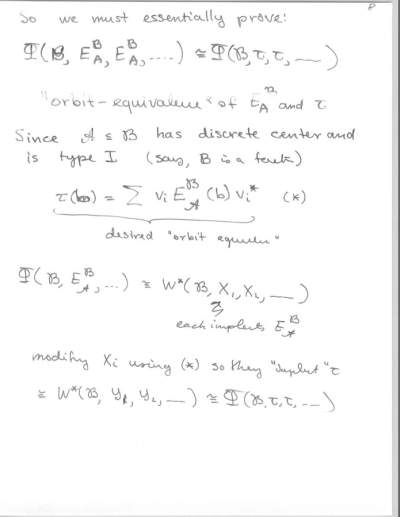 8
So we must essentially prove:
Φ(B, E_A^B, E_A^B, ....) ≅ Φ(B, τ, τ, —)
"orbit-equivalence" of E_A^B and τ
Since A ⊆ B has discrete center and
is type I (say, B is a factor)
τ(b) = Σ v_i E_A^B (b) v_i* (*)
desired "orbit equivalence"
Φ(B, E_A^B, ...) ≅ W*(B, X_1, X_2, —)
each implements E_A^B
modify X_i using (*) so they "implement" τ
≅ W*(B, Y_1, Y_2, —) ≅ Φ(B, τ, τ, —)